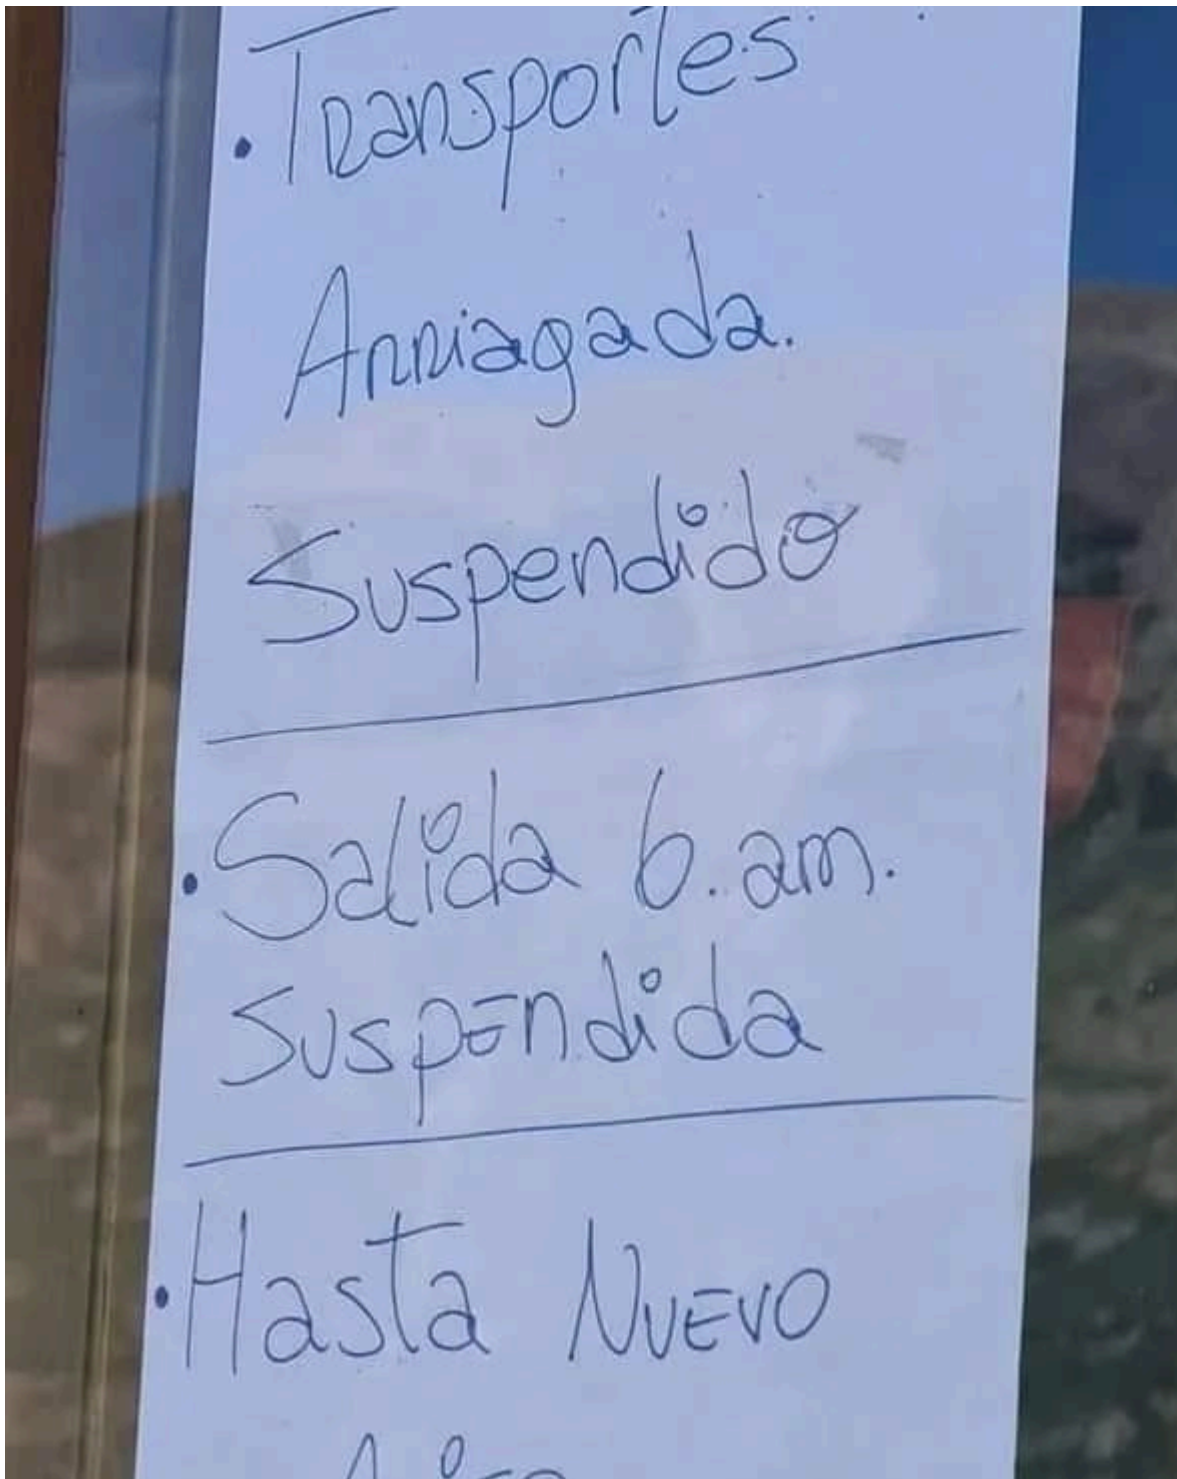 • Transportes
Arriagada.
Suspendido
• Salida 6. am.
Suspendida
• Hasta Nuevo